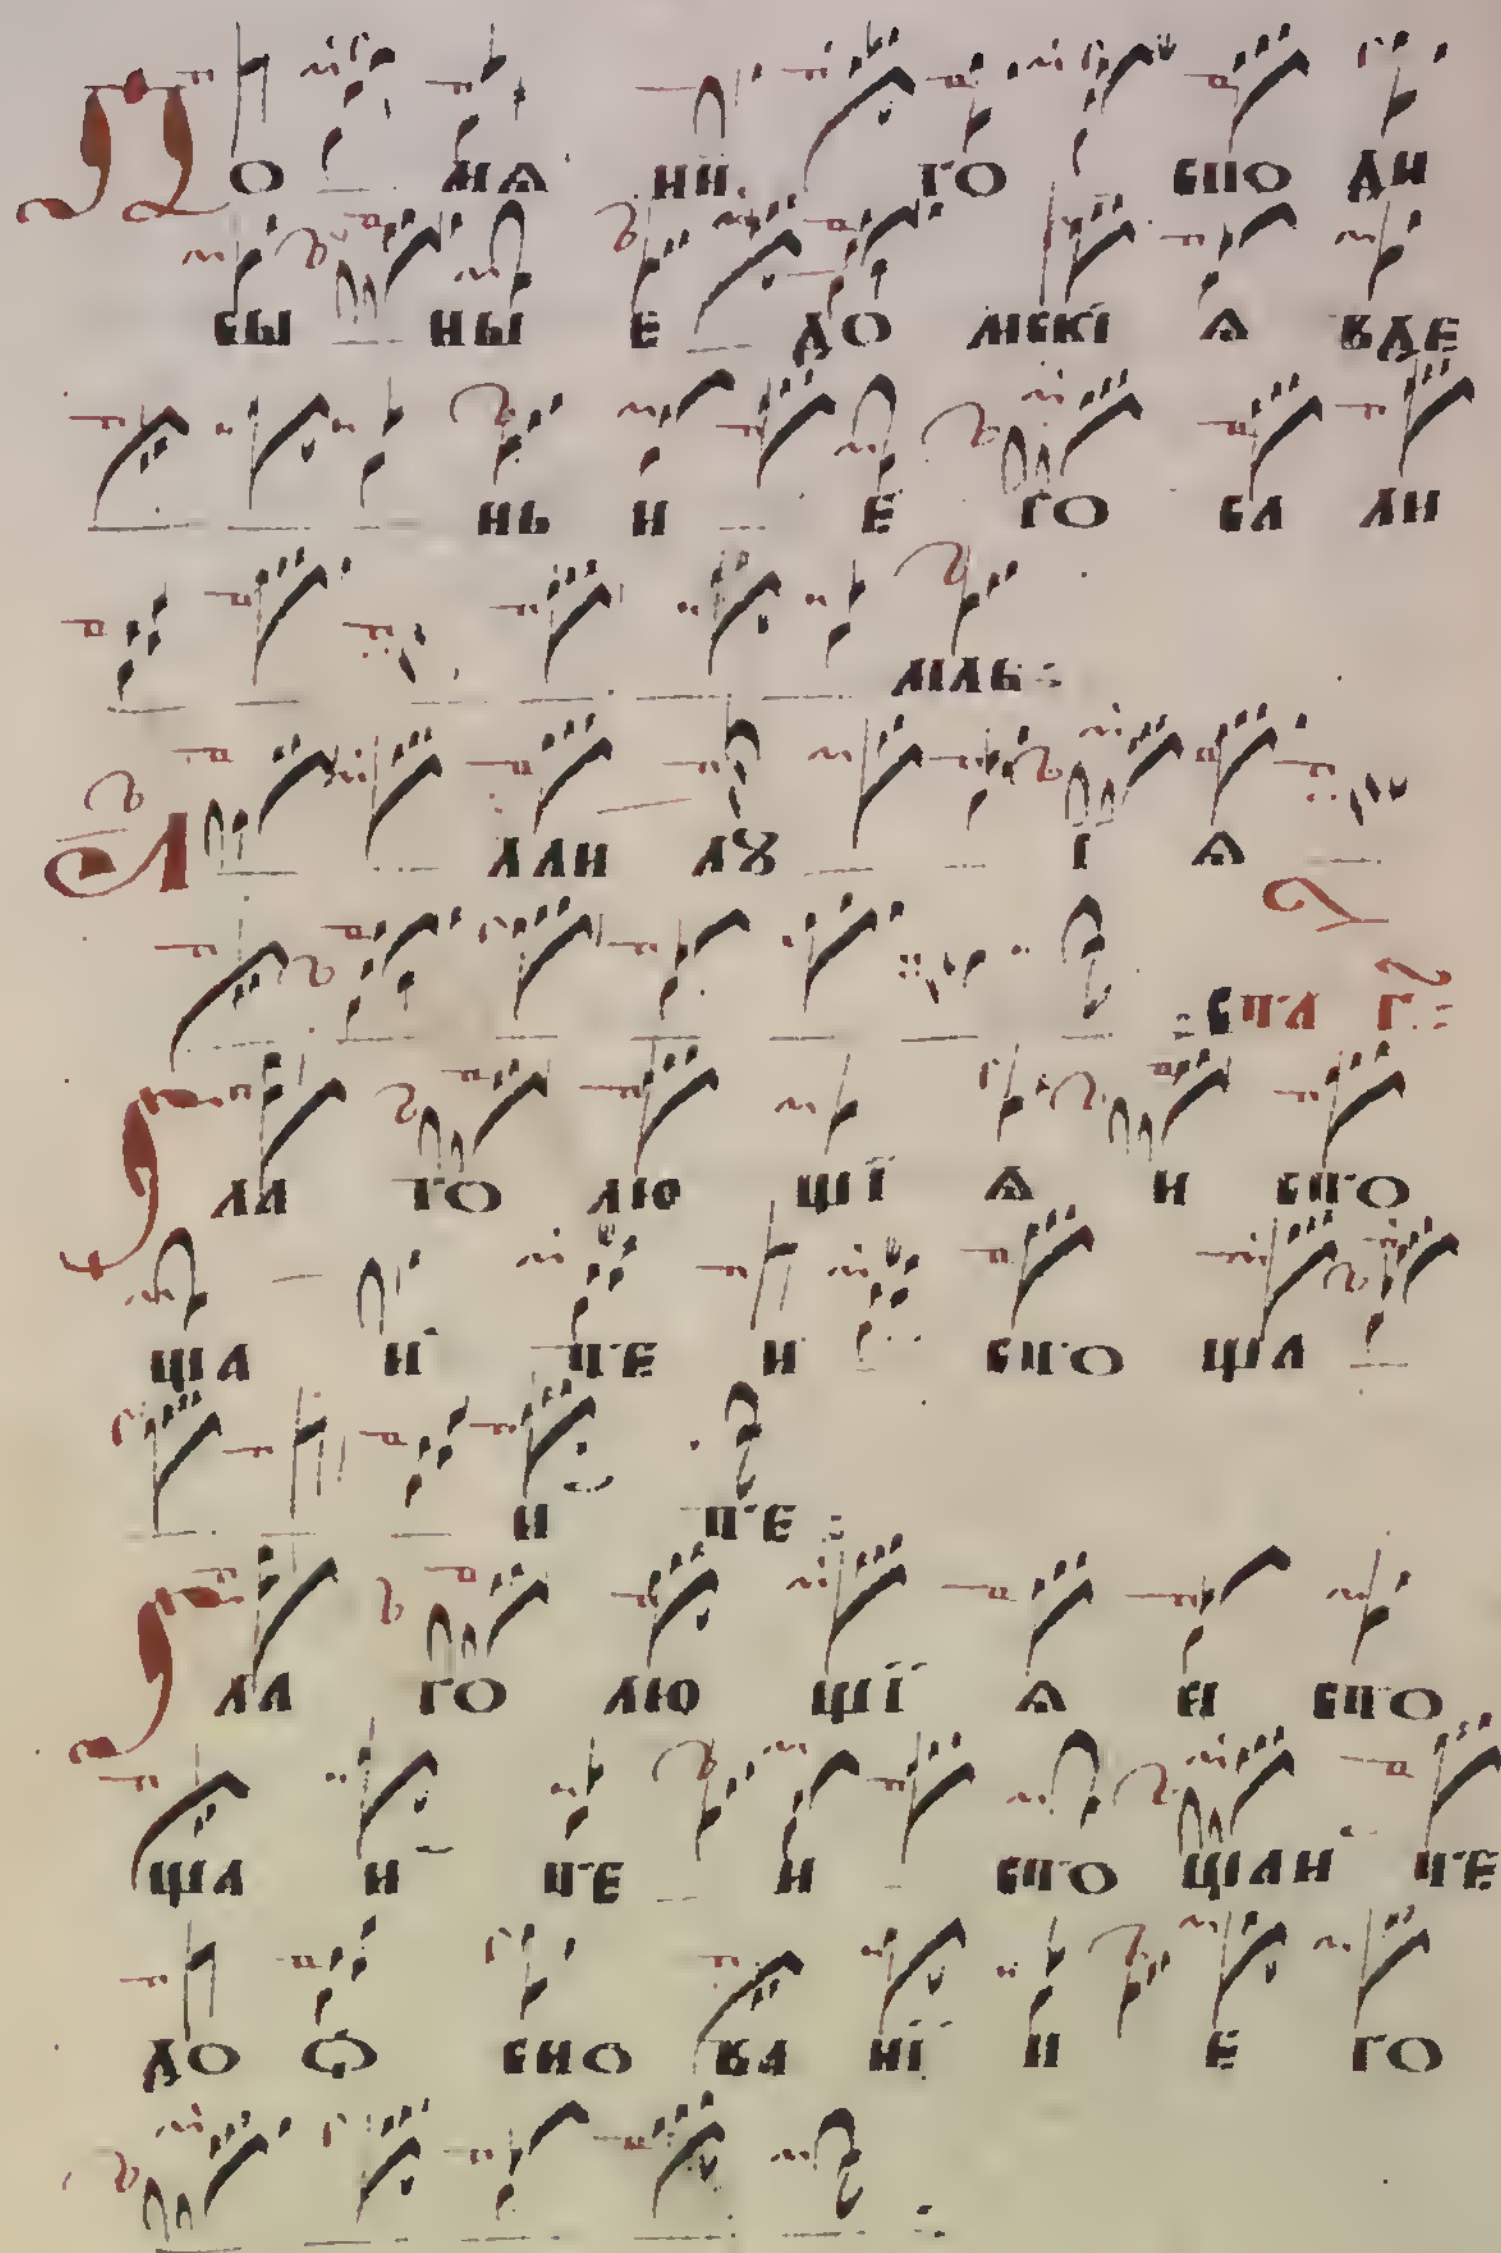 По мѧ ни го спо ди
сы ны е до мскї ѧ вде
нь и е го са ли
мль :
А лли лꙋ ї ѧ
: спа г :
Гла го лю щї ѧ и сто
ща и те и сто ща
и те :
Гла го лю щї ѧ и сто
ща и те и сто щаи те
до ѻ сно ва нї и е го